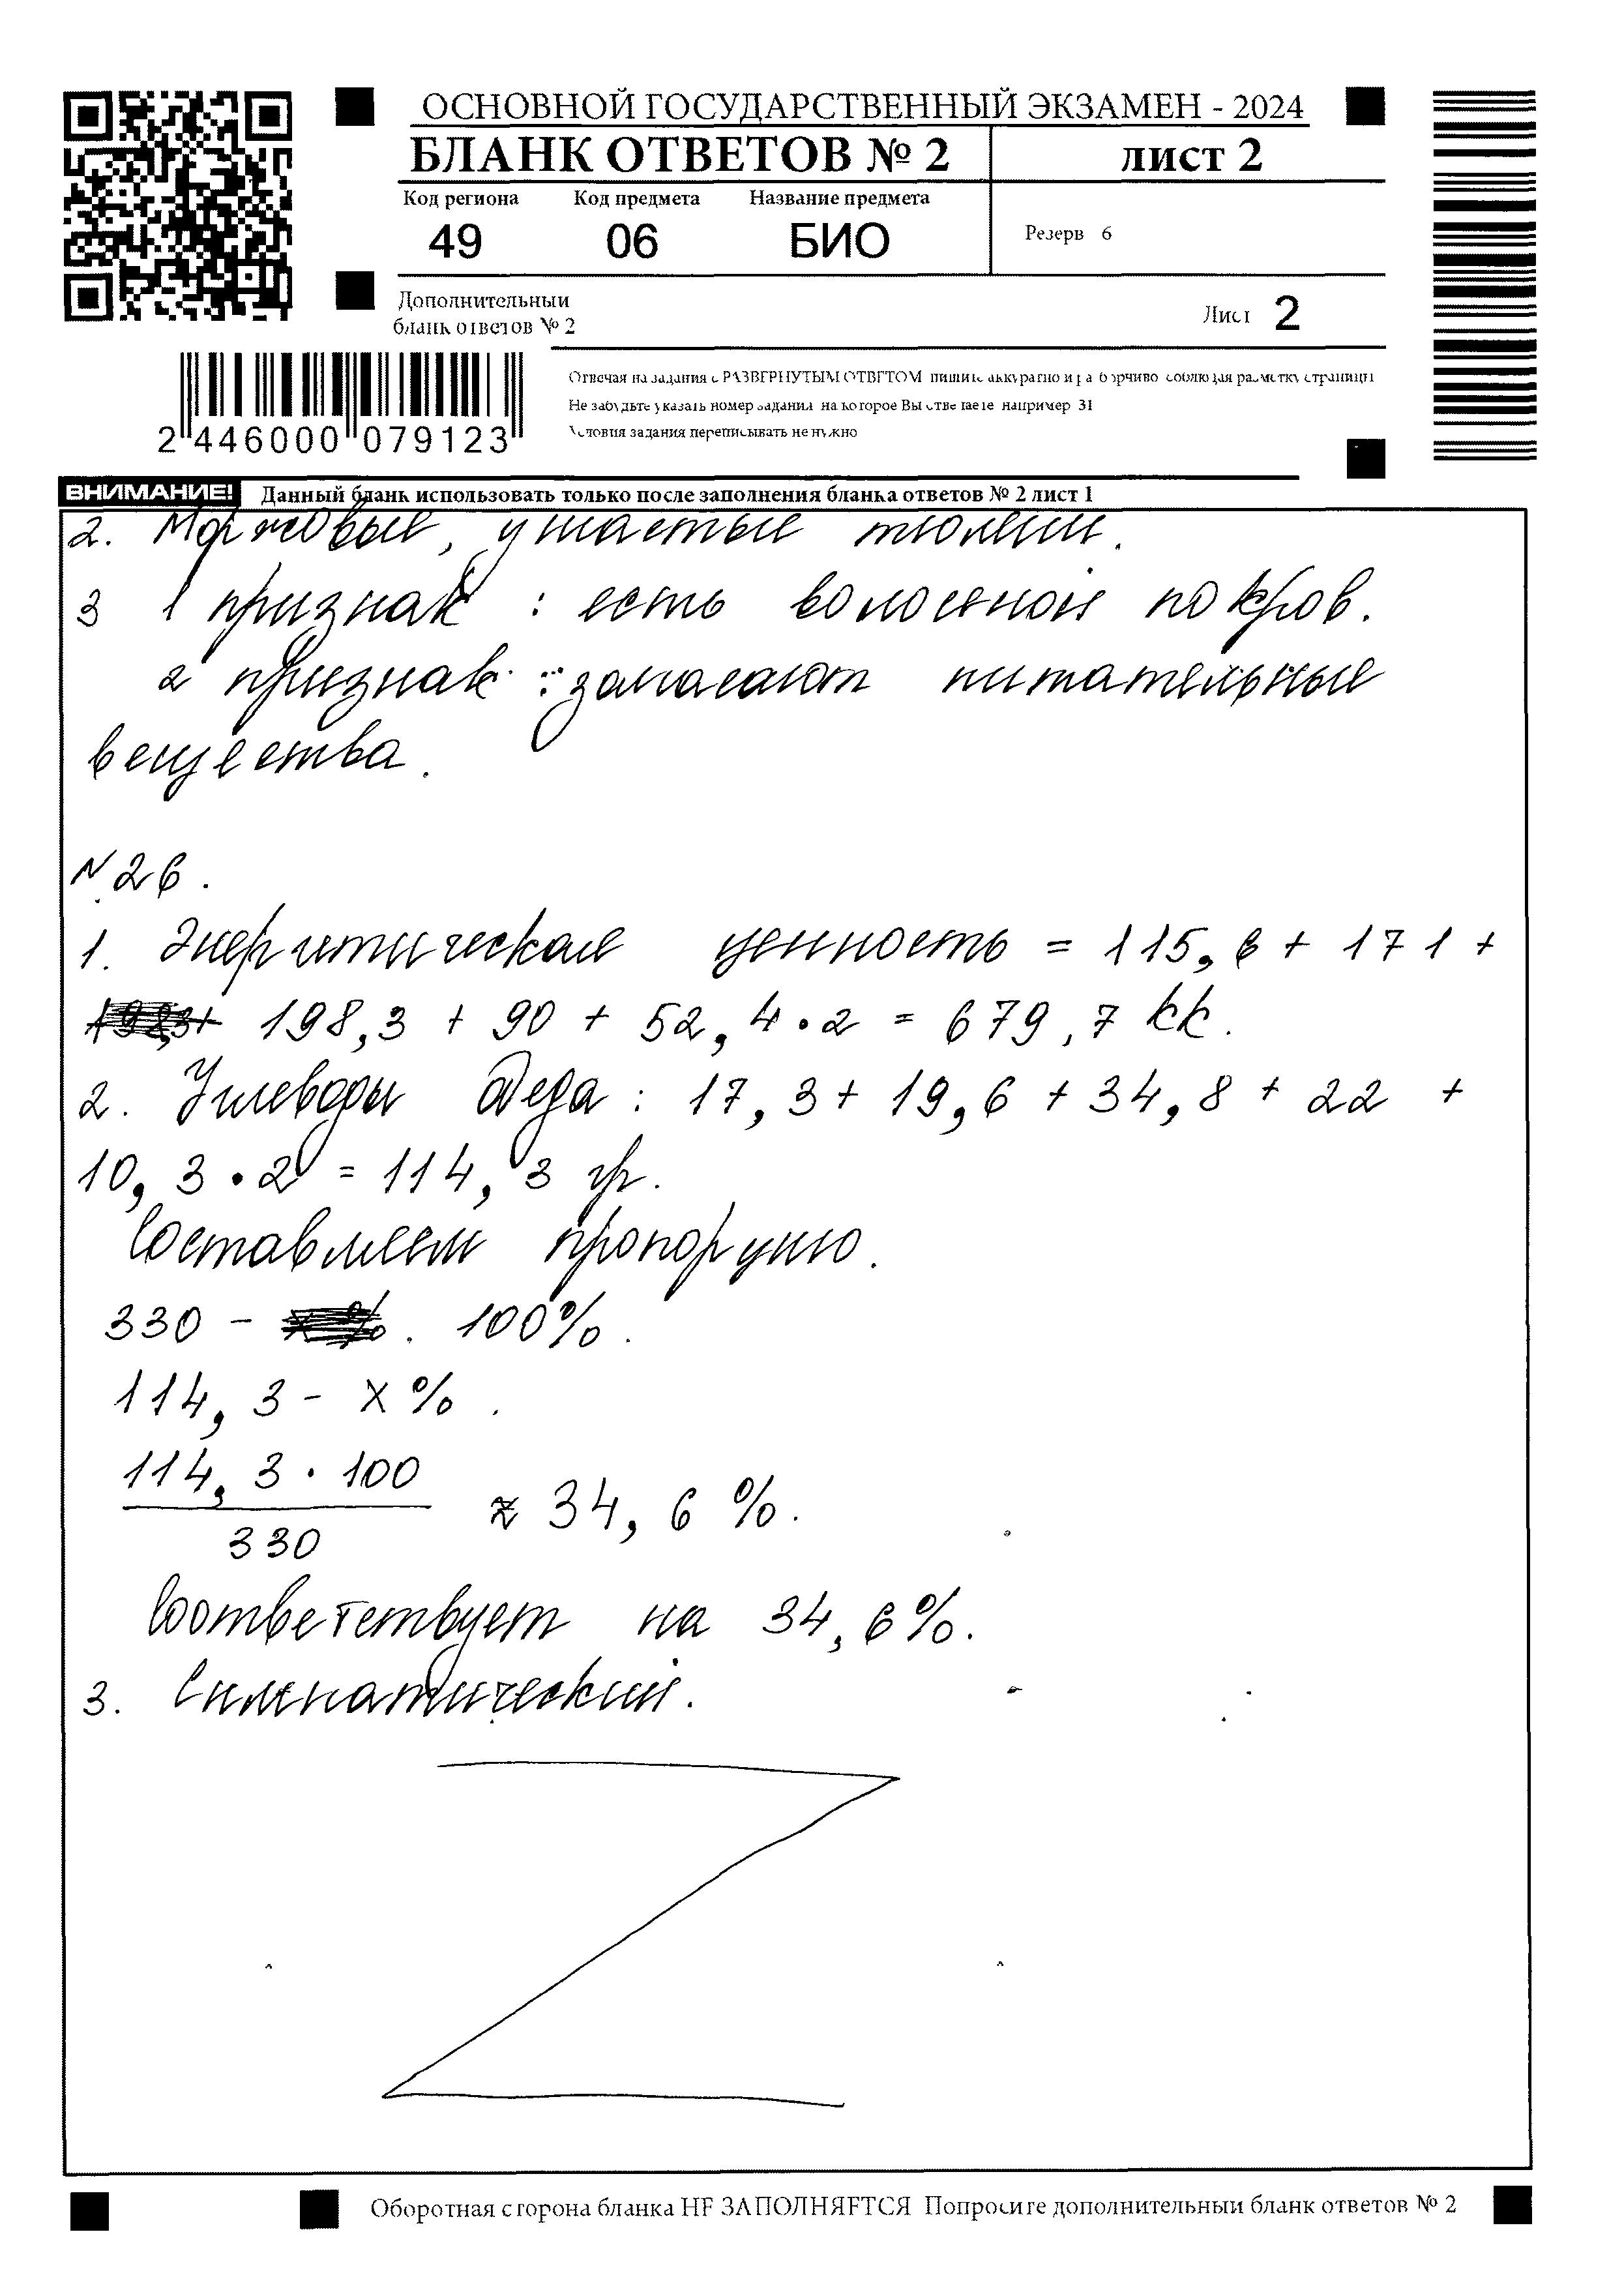 ОСНОВНОЙ ГОСУДАРСТВЕННЫЙ ЭКЗАМЕН - 2024
БЛАНК ОТВЕТОВ № 2
лист 2
Код региона Код предмета Название предмета
49 06 БИО
Резерв 6
Дополнительный
бланк ответов № 2
Лист 2
Отвечая на задания с РАЗВЕРНУТЫМ ОТВЕТОМ пишите аккуратно и разборчиво соблюдая разметку страницы
Не забудьте указать номер задания на которое Вы отвечаете например 31
Условия задания переписывать не нужно
2 446000 079123
ВНИМАНИЕ! Данный бланк использовать только после заполнения бланка ответов № 2 лист 1
2. Моржовые, ушастые тюлени.
3 1 признак : есть волосяной покров.
2 признак : запасают питательные
вещества.
№ 26.
1. Энергитическая ценность = 115,6 + 171 +
198,3 + 90 + 52,4 · 2 = 679,7 кк.
2. Углеводы обеда : 17,3 + 19,6 + 34,8 + 22 +
10,3 · 2 = 114,3 гр.
Составляем пропорцию.
330 - 100%.
114,3 - x%.
114,3 · 100
330
≈ 34,6 %.
Соответствует на 34,6%.
3. Симпатический.
Оборотная сторона бланка НЕ ЗАПОЛНЯЕТСЯ Попросите дополнительный бланк ответов № 2